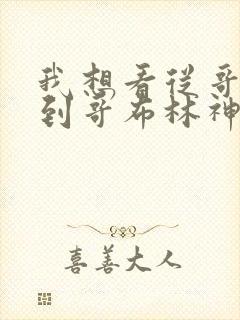 我想看从哥
到哥布林神
喜善大人